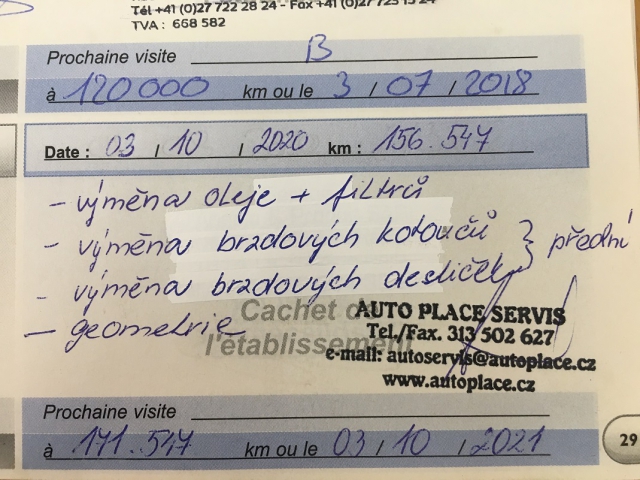 Tél +41 (0)27 722 28 24 - Fax +41 (0)27 723 15 24
TVA : 668 582
Prochaine visite B
à 120000 km ou le 3 / 07 / 2018
Date : 03 / 10 / 2020 km : 156.547
- výměna oleje + filtrů
- výměna brzdových kotoučů } přední
- výměna brzdových destiček
- geometrie
Cachet de
l'établissement
AUTO PLACE SERVIS
Tel./Fax. 313 502 627
e-mail: autoservis@autoplace.cz
www.autoplace.cz
Prochaine visite
à 171.547 km ou le 03 / 10 / 2021
29